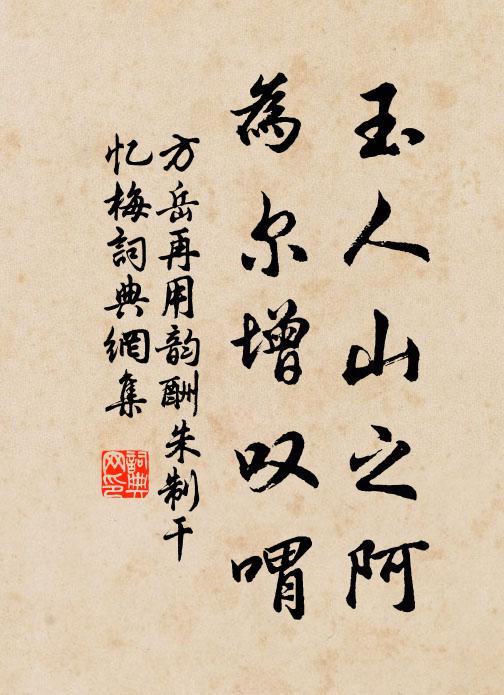 玉人山之阿
為尔增叹喟
方岳再用韵酬朱制干
忆梅詞典網集
詞典网印